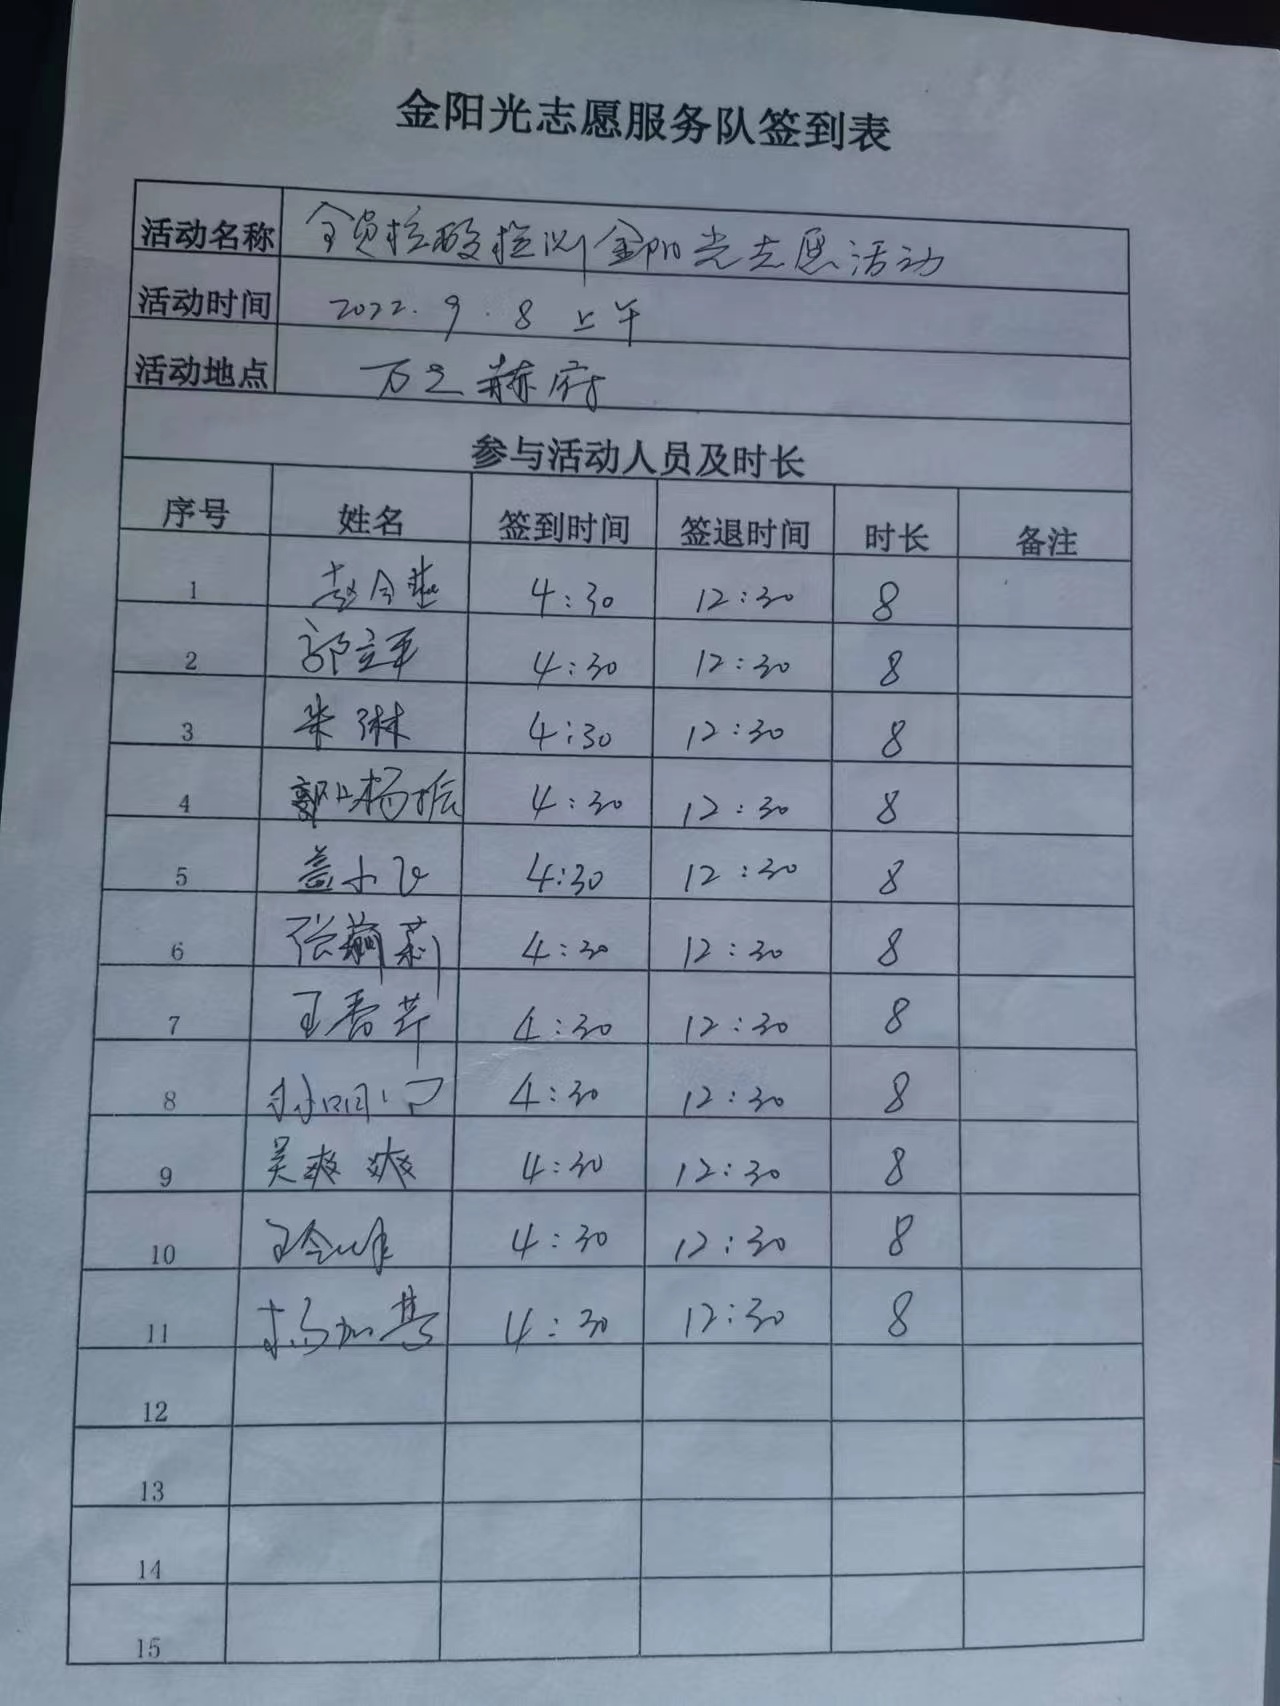 金阳光志愿服务队签到表
活动名称 全员核酸检测金阳光志愿活动
活动时间 2022.9.8 上午
活动地点 万之赫府
参与活动人员及时长
序号 姓名 签到时间 签退时间 时长 备注
1 赵 4:30 12:30 8
2 郭立军 4:30 12:30 8
3 朱琳 4:30 12:30 8
4 郭杨振 4:30 12:30 8
5 盖小飞 4:30 12:30 8
6 张莉 4:30 12:30 8
7 王香芹 4:30 12:30 8
8 4:30 12:30 8
9 吴爽爽 4:30 12:30 8
10 王 4:30 12:30 8
11 杨加慧 4:30 12:30 8
12
13
14
15